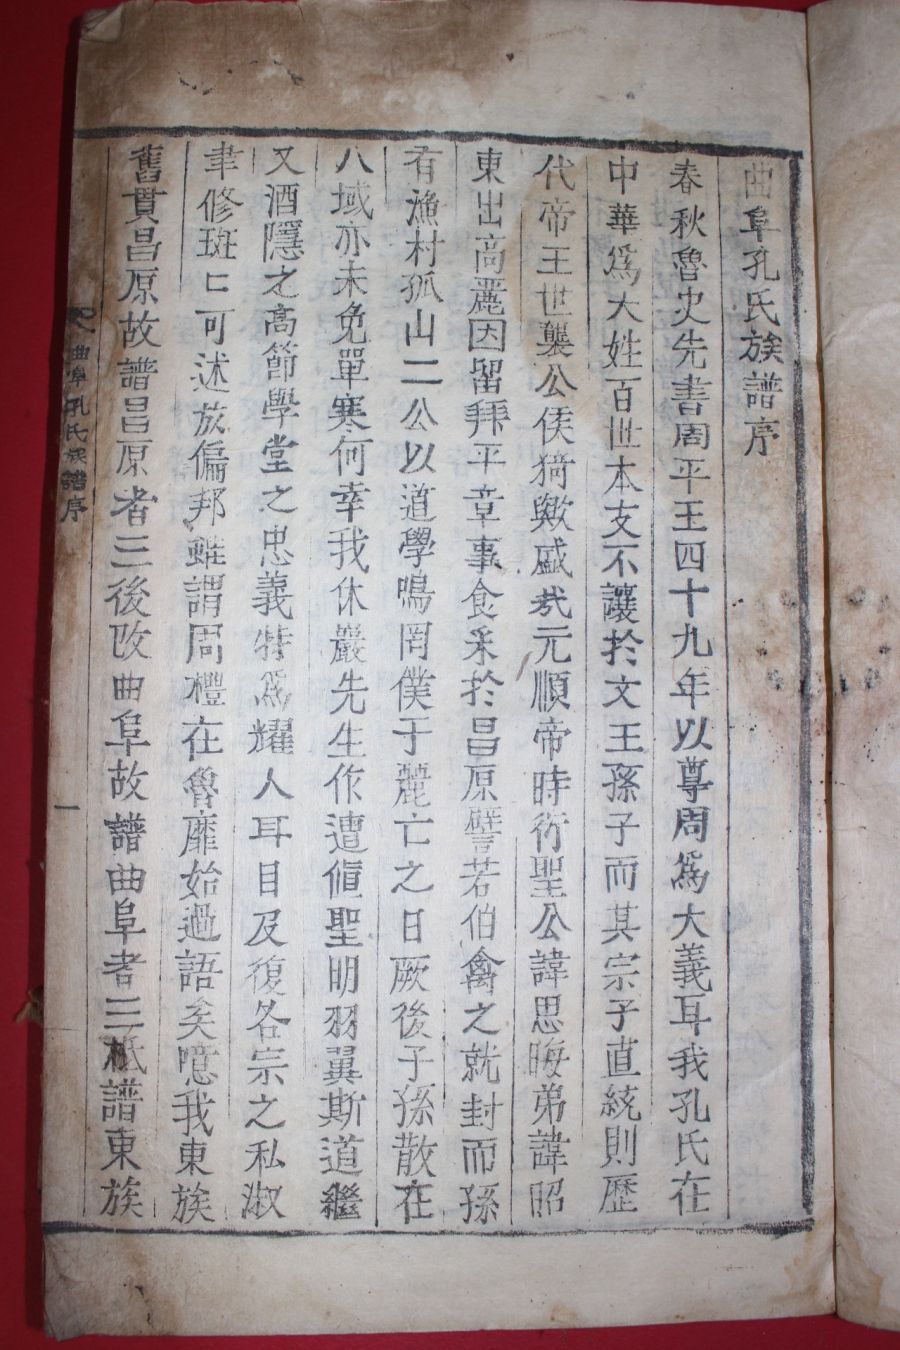 曲阜孔氏族譜序
春秋魯史先書周平王四十九年以尊周爲大義耳我孔氏在
中華爲大姓百世本支不讓於文王孫子而其宗子直統則歷
代帝王世襲公侯猗歟盛哉元順帝時衍聖公諱思晦弟諱昭
東出高麗因留拜平章事食采於昌原譬若伯禽之就封而孫
有漁村孤山二公以道學鳴罔僕于麗亡之日厥後子孫散在
八域亦未免單寒何幸我休巖先生作遭值聖明羽翼斯道繼
又酒隱之高節學堂之忠義特爲耀人耳目及復各宗之私淑
聿修斑〻可述於偏邦雖謂周禮在魯靡始過語矣噫我東族
舊貫昌原故譜昌原者三後改曲阜故譜曲阜者三秪譜東族
曲阜孔氏族譜序
一